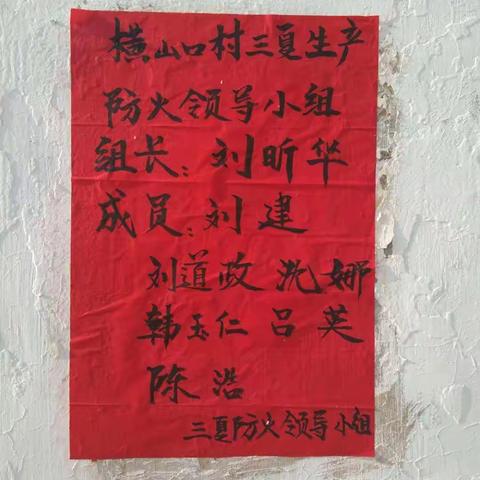 横山口村三夏生产
防火领导小组
组长:刘昕华
成员:刘建
刘道政 沈娜
韩玉仁 吕英
陈浩
三夏防火领导小组